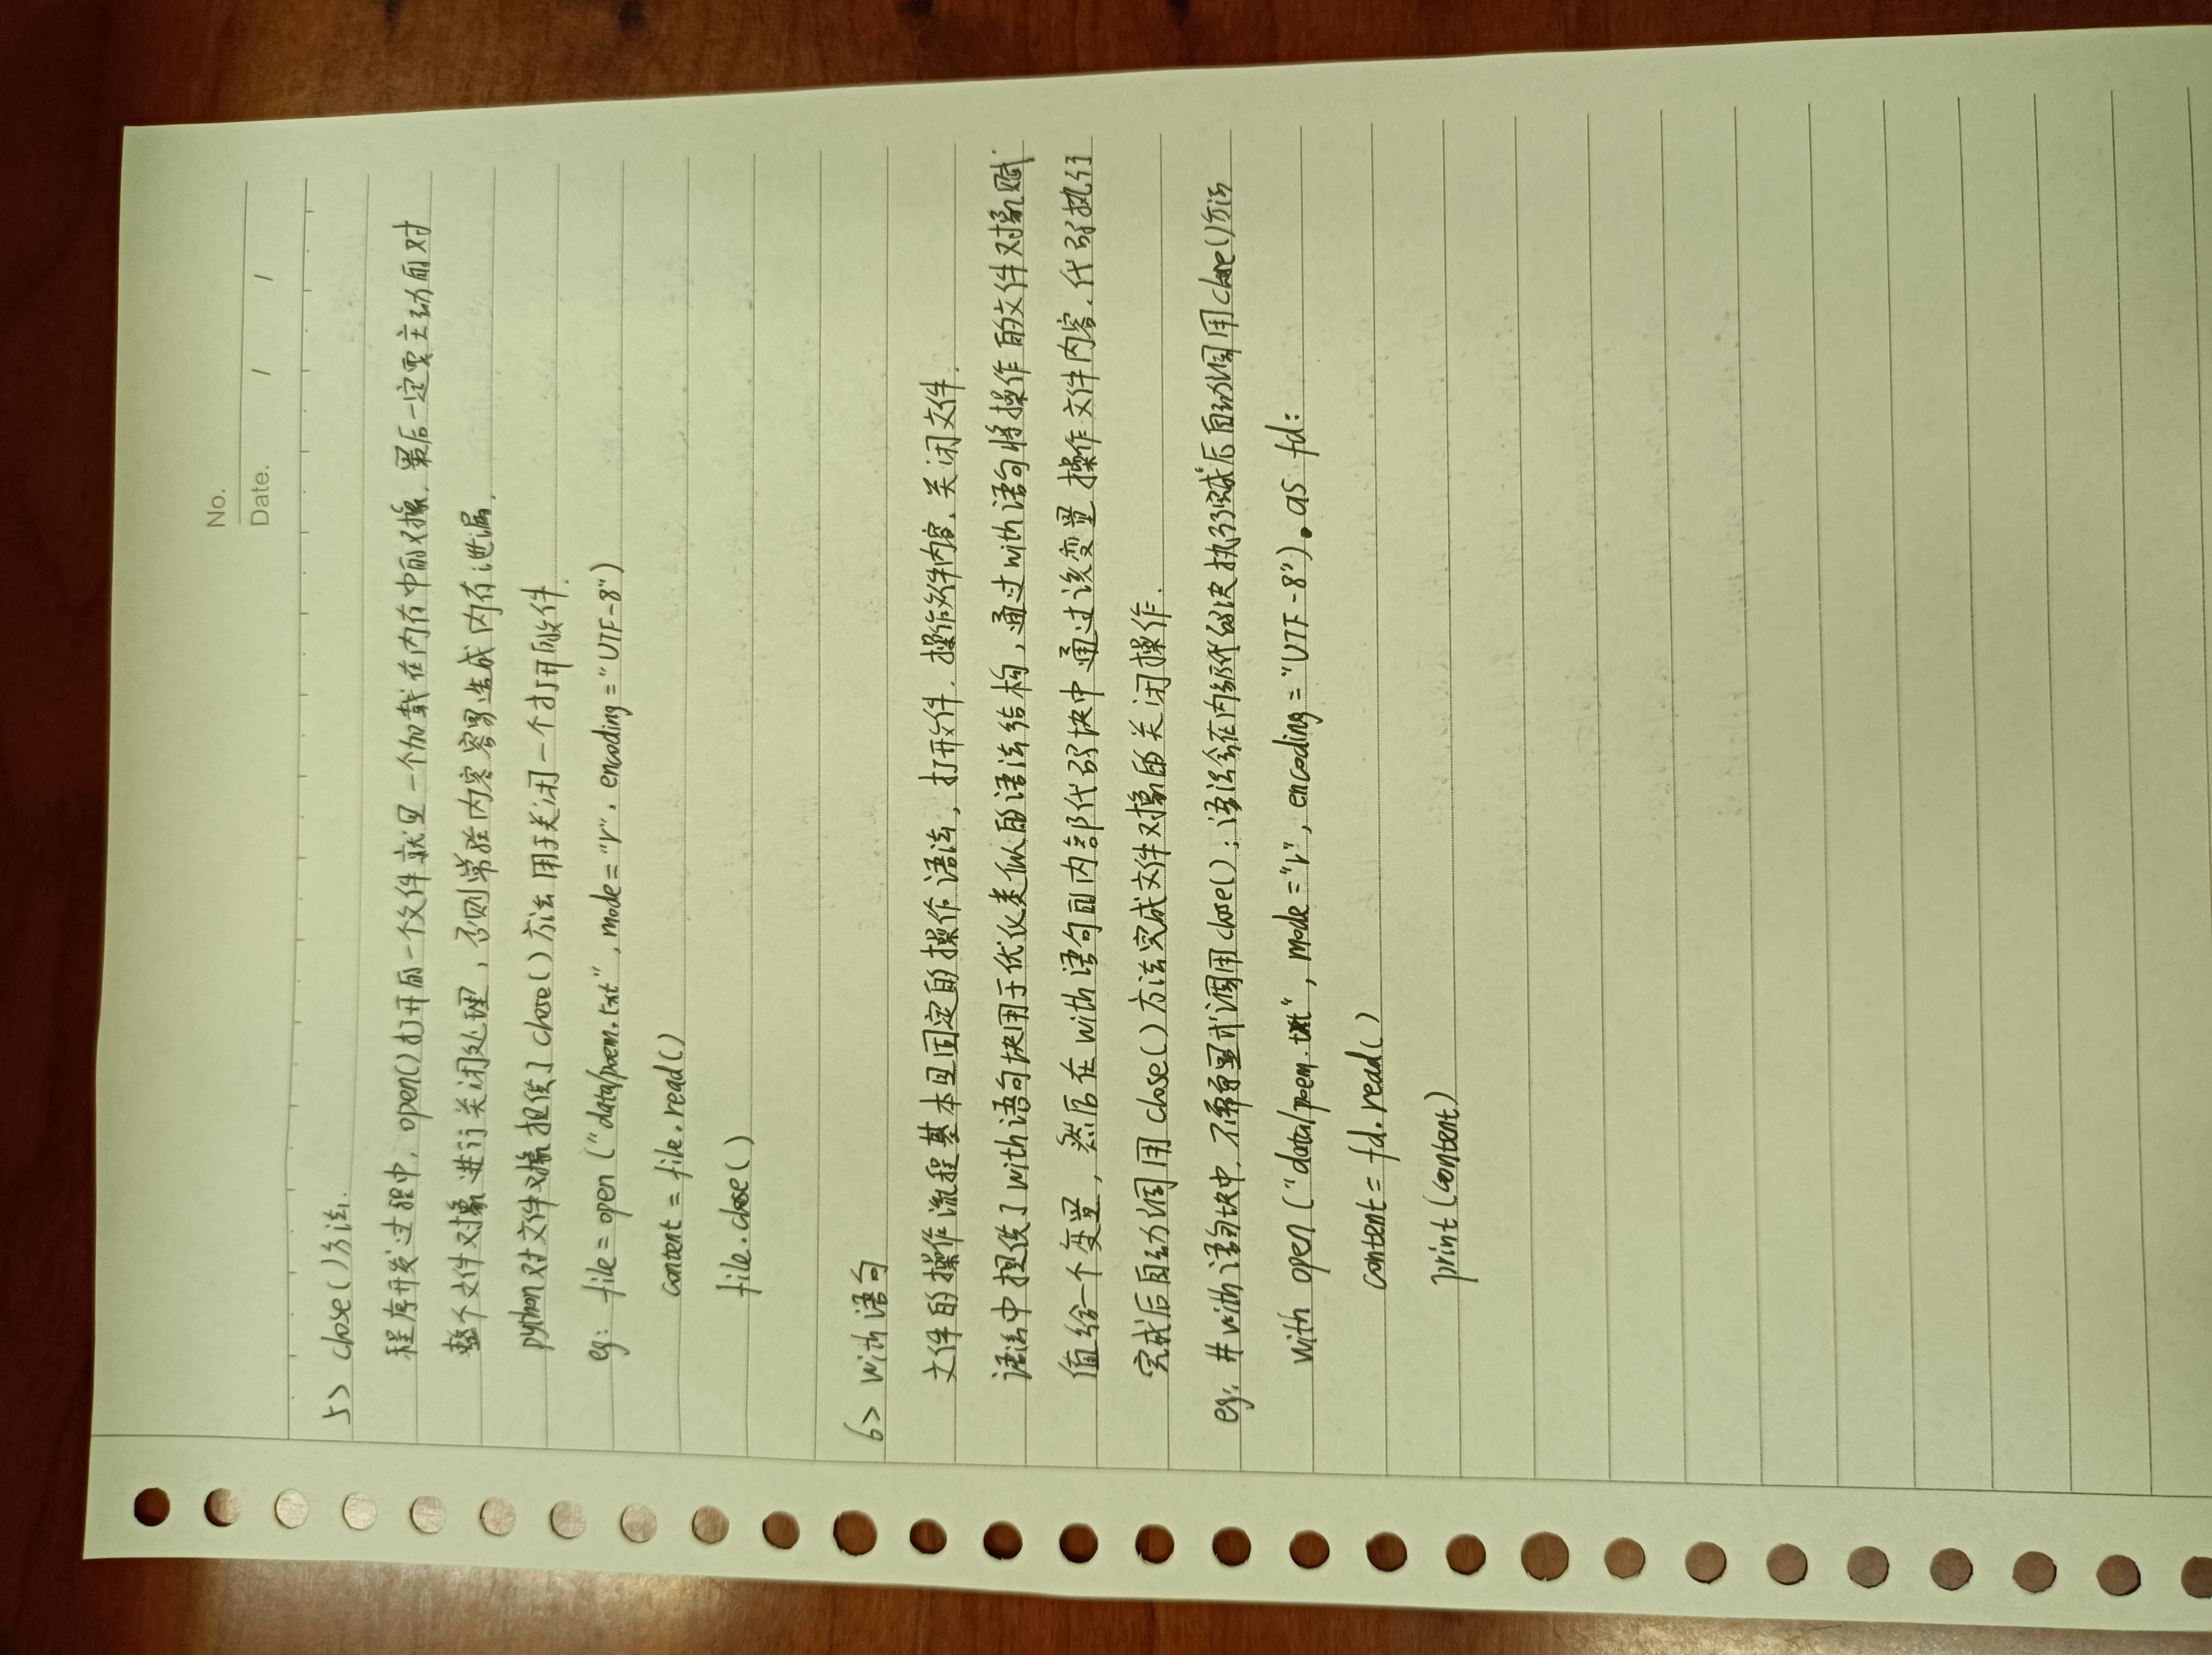 No.
Date. / /
5> close()方法.
程序开发过程中, open()打开的一个文件就是一个加载在内存中的对象. 最后一定要主动的对
整个文件对象进行关闭处理, 否则常驻内容容易造成内存泄漏.
python对文件对象提供了close()方法用于关闭一个打开的文件.
eg: file = open("data/poem.txt", mode="r", encoding="UTF-8")
content = file.read()
file.close()
6> with语句
文件的操作流程基本是固定的操作语法, 打开文件. 操作文件内容、关闭文件.
语法中提供了with语句块用于优化类似的语法结构, 通过with语句将操作的文件对象赋
值给一个变量, 然后在with语句的内部代码块中通过该变量操作文件内容. 代码执行
完成后自动调用close()方法完成文件对象的关闭操作.
eg: #with语句块中, 不需要显式调用close(); 语法会在内部代码块执行完成后自动调用close()方法
with open("data/poem.txt", mode="r", encoding="UTF-8") as fd:
content = fd.read()
print(content)